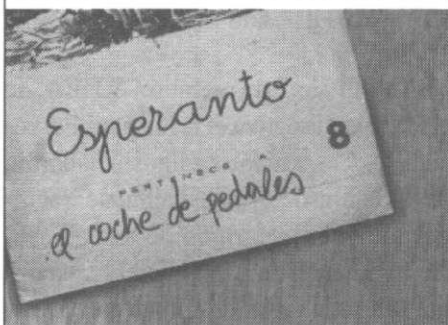 Esperanto
8
PERTENECE A
el coche de pedales